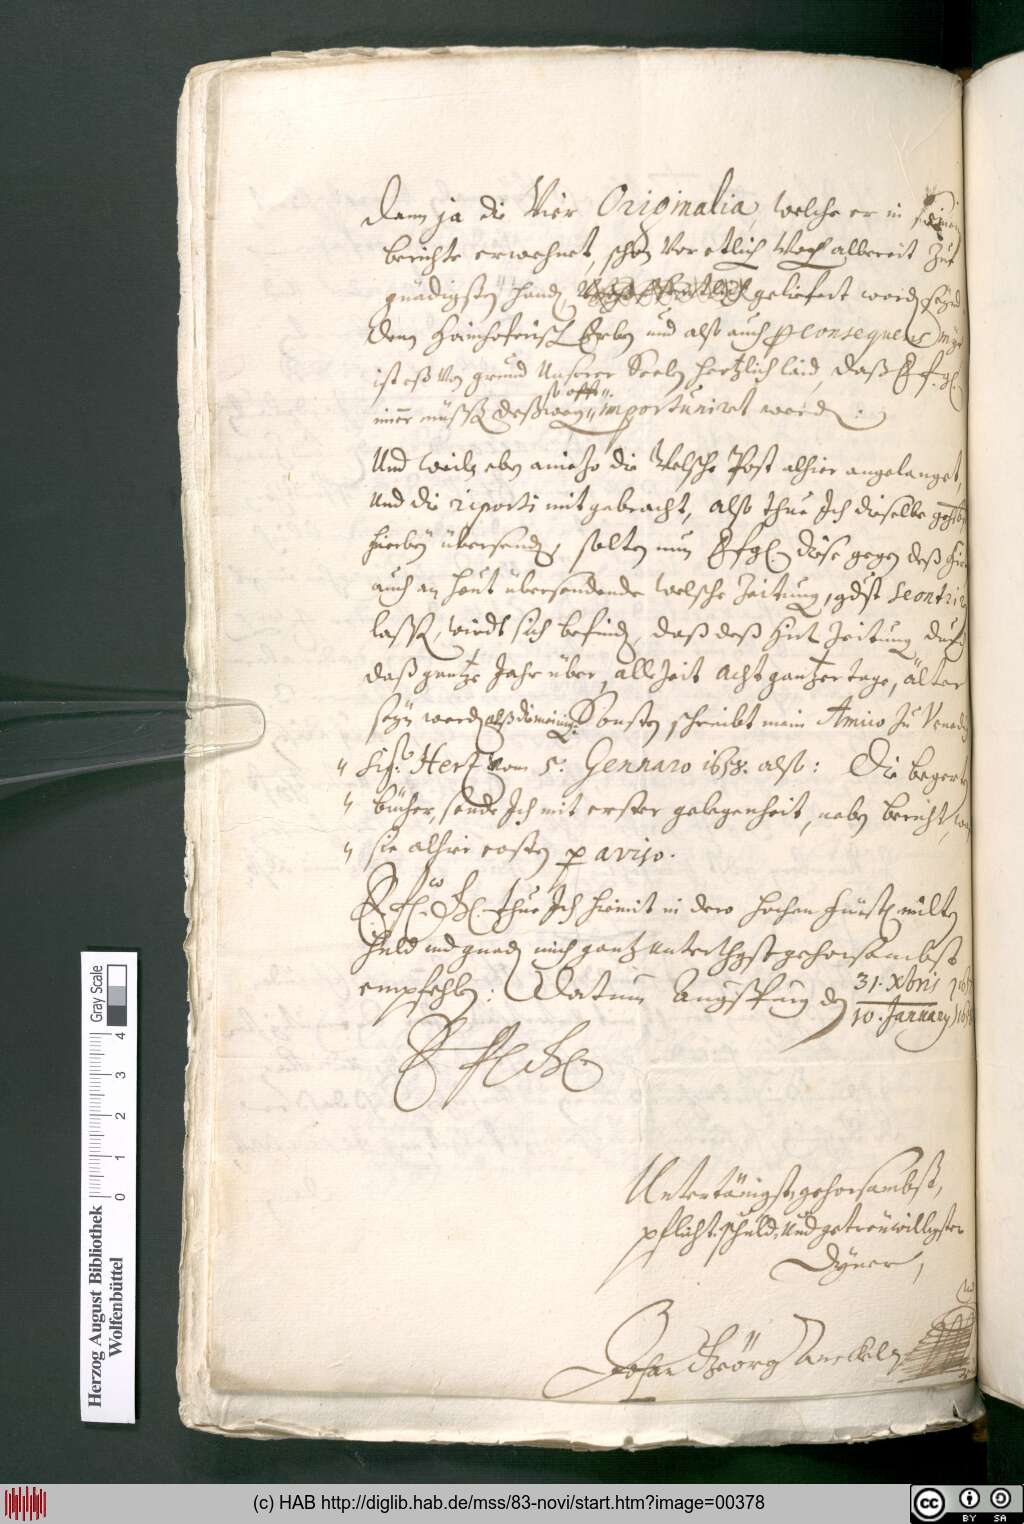 Dann ja die Vier Originalia, welche er in seinem
berichte erwehnet, schon Vor etlich Woch albereit zue
gnedigsten handen geliefert worden seynd
denn Hainhoferisch Erben und also auch consequens
ist eß Von grund Unserer Seelen hertzlich laid, daß E f. g.
so offt
immer müssen deßwegen importunirt werden.
Und weiln eben aniezo die Welsche Post alhier angelanget,
Und die riporti mit gebracht, also thue Ich dieselbe
hierbey übersenden, solten nun E f g. diese gegen deß
auch an heut übersendende welsche Zeitung, gdst scontriren
lassen, wirdt sich befinden, daß deß Zeitung durch
daß gantze Jahr über, alle Zeit acht gantzer tage, älter
seyn werden, alß die meinige. Sonsten schreibt mein Amico Zu Venedig
Sigr. Hertz vom 5. Gennaro 1658. also: Die begerte
bücher, sende Ich mit erster gelegenheit, neben bericht, was
sie alhier costen p aviso.
thue Ich hiemit in dero hochen Fürstl milten
Huld und gnaden mich gantz unterthgst gehorsambst
empfehlen: Datum Augspurg den
31. Xbris
10. January
Untertänigst, gehorsambst,
pflicht: schuld: Und getreuwilligster
Dyner,
Johan Geörg Anckel
Herzog August Bibliothek
Wolfenbüttel
0 1 2 3 4
Gray Scale
(c) HAB http://diglib.hab.de/mss/83-novi/start.htm?image=00378
cc BY SA